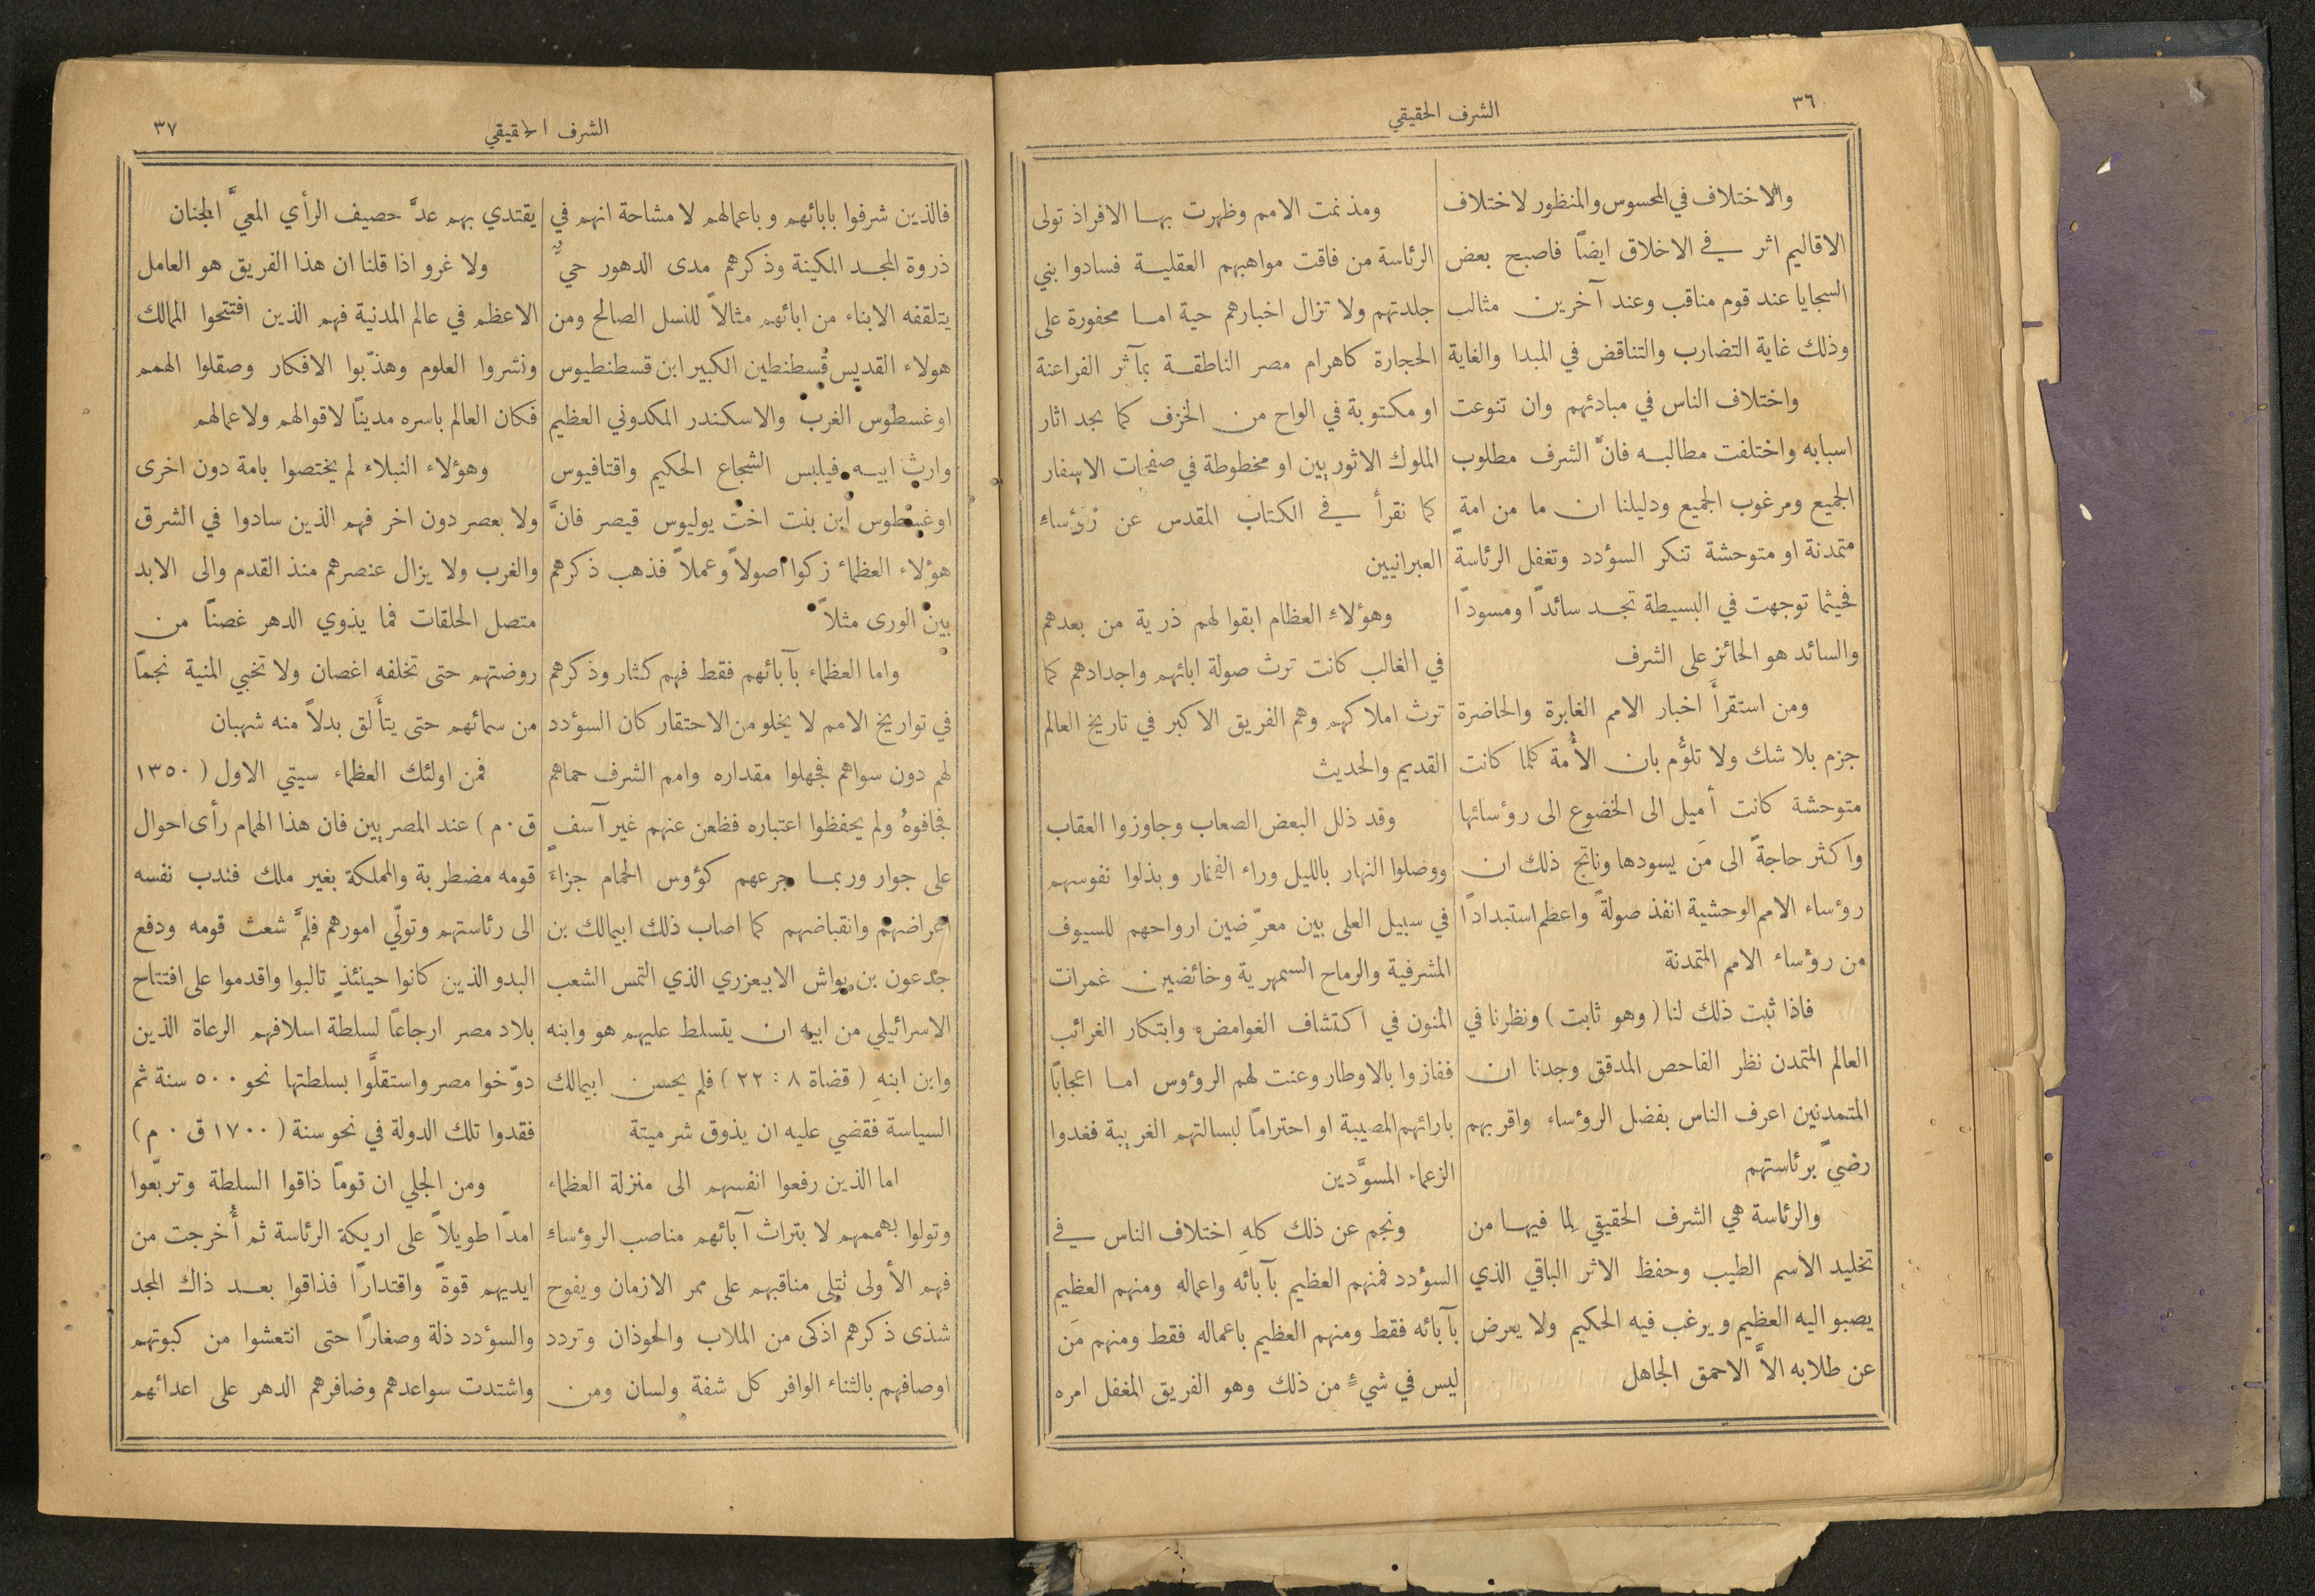 ٣٦
الشرف الحقيقي
والاختلاف في المحسوس والمنظور لاختلاف
الاقاليم اثر في الاخلاق ايضًا فاصبح بعض
السجايا عند قوم مناقب وعند آخرين مثالب
وذلك غاية التضارب والتناقض في المبدا والغاية
واختلاف الناس في مبادئهم وان تنوعت
اسبابه واختلفت مطالبه فانَّ الشرف مطلوب
الجميع ومرغوب الجميع ودليلنا ان ما من امةٍ
متمدنة او متوحشة تنكر السؤدد وتغفل الرئاسة
فحيثما توجهت في البسيطة تجد سائدًا ومسودًا
والسائد هو الحائز على الشرف
ومن استقرأَ اخبار الامم الغابرة والحاضرة
جزم بلا شك ولا تلوُّم بان الأُمة كلما كانت
متوحشة كانت أميل الى الخضوع الى رؤسائها
واكثر حاجةً الى مَن يسودها وناتج ذلك ان
رؤساء الامم الوحشية انفذ صولةً واعظم استبدادًا
من رؤساء الامم المتمدنة
فاذا ثبت ذلك لنا (وهو ثابت) ونظرنا في
العالم المتمدن نظر الفاحص المدقق وجدنا ان
المتمدنين اعرف الناس بفضل الرؤساء واقربهم
رضىً برئاستهم
والرئاسة هي الشرف الحقيقي لِما فيها من
تخليد الاسم الطيب وحفظ الاثر الباقي الذي
يصبو اليه العظيم ويرغب فيه الحكيم ولا يعرض
عن طلابه الاَّ الاحمق الجاهل
ومذ نمت الامم وظهرت بها الافراذ تولى
الرئاسة من فاقت مواهبهم العقلية فسادوا بني
جلدتهم ولا تزال اخبارهم حية اما محفورة على
الحجارة كاهرام مصر الناطقة بمآثر الفراعنة
او مكتوبة في الواح من الخزف كما يجد اثار
الملوك الاثوريين او مخطوطة في صفحات الاسفار
كما نقرأ في الكتاب المقدس عن رؤساء
العبرانيين
وهؤلاءِ العظام ابقوا لهم ذرية من بعدهم
في الغالب كانت ترث صولة ابائهم واجدادهم كما
ترث املاكهم وهم الفريق الاكبر في تاريخ العالم
القديم والحديث
وقد ذلل البعض الصعاب وجاوزوا العقاب
ووصلوا النهار بالليل وراء الفخار وبذلوا نفوسهم
في سبيل العلى بين معرِّضين ارواحهم للسيوف
المشرفية والرماح السمهرية وخائضين غمرات
المنون في اكتشاف الغوامض وابتكار الغرائب
ففازوا بالاوطار وعنت لهم الرؤوس اما اعجابًا
بارائهم المصيبة او احترامًا لبسالتهم الغريبة فغدوا
الزعماء المسوَّدين
ونجم عن ذلك كلهِ اختلاف الناس في
السؤدد فمنهم العظيم بآبائه واعماله ومنهم العظيم
بآبائه فقط ومنهم العظيم باعماله فقط ومنهم مَن
ليس في شيءٍ من ذلك وهو الفريق المغفل امره
الشرف الحقيقي
٣٧
فالذين شرفوا بابائهم وباعمالهم لا مشاحة انهم في
ذروة المجد المكينة وذكرهم مدى الدهور حيٌّ
يتلقفه الابناء من ابائهم مثالاً للنسل الصالح ومن
هولاء القديس قسطنطين الكبير ابن قسطنطيوس
اوغسطوس الغرب والاسكندر المكدوني العظيم
وارث ابيه فيلبس الشجاع الحكيم واقتافيوس
اوغسطوس ابن بنت اخت يوليوس قيصر فانَّ
هؤلاء العظماء زكوا اصولاً وعملاً فذهب ذكرهم
بين الورى مثلاً
واما العظماء بآبائهم فقط فهم كثار وذكرهم
في تواريخ الامم لا يخلو من الاحتقار كان السؤدد
لهم دون سواهم فجهلوا مقداره وامم الشرف حماهم
فجافوهُ ولم يحفظوا اعتباره فظعن عنهم غير آسفٍ
على جوار وربما جرعهم كؤوس الحمام جزاءَ
اعراضهم وانقباضهم كما اصاب ذلك ابيمالك بن
جدعون بن يواش الابيعزري الذي التمس الشعب
الاسرائيلي من ابيه ان يتسلط عليهم هو وابنه
وابن ابنهِ (قضاة ٨ : ٢٢) فلم يحسن ابيمالك
السياسة فقضي عليه ان يذوق شر ميتة
اما الذين رفعوا انفسهم الى منزلة العظماء
وتولوا بهممهم لا بتراث آبائهم مناصب الرؤساءِ
فهم الأولى تتلى مناقبهم على ممر الازمان ويفوح
شذى ذكرهم اذكى من الملاب والحوذان وتردد
اوصافهم بالثناء الوافر كل شفة ولسان ومن
يقتدي بهم عدَّ حصيف الرأي المعيَّ الجنان
ولا غرو اذا قلنا ان هذا الفريق هو العامل
الاعظم في عالم المدنية فهم الذين افتتحوا الممالك
ونشروا العلوم وهذّبوا الافكار وصقلوا الهمم
فكان العالم باسره مدينًا لاقوالهم ولاعمالهم
وهؤلاء النبلاء لم يختصوا بامة دون اخرى
ولا بعصر دون اخر فهم الذين سادوا في الشرق
والغرب ولا يزال عنصرهم منذ القدم والى الابد
متصل الحلقات فما يذوي الدهر غصنًا من
روضتهم حتى تخلفه اغصان ولا تخبي المنية نجمًا
من سمائهم حتى يتأَلق بدلاً منه شهبان
فمن اولئك العظماء سيتي الاول (١٣٥٠
ق٠م) عند المصريين فان هذا الهمام رأى احوال
قومه مضطربة والمملكة بغير ملك فندب نفسه
الى رئاستهم وتولّي امورهم فلمَّ شعث قومه ودفع
البدو الذين كانوا حينئذٍ تالبوا واقدموا على افتتاح
بلاد مصر ارجاعًا لسلطة اسلافهم الرعاة الذين
دوّخوا مصر واستقلَّوا بسلطتها نحو ٥٠٠ سنة ثم
فقدوا تلك الدولة في نحو سنة (١٧٠٠ ق ٠ م)
ومن الجلي ان قومًا ذاقوا السلطة وتربّعوا
امدًا طويلاً على اريكة الرئاسة ثم أُخرجت من
ايديهم قوةً واقتدارًا فذاقوا بعد ذاك المجد
والسؤدد ذلة وصغارًا حتى انتعشوا من كبوتهم
واشتدت سواعدهم وضافرهم الدهر على اعدائهم